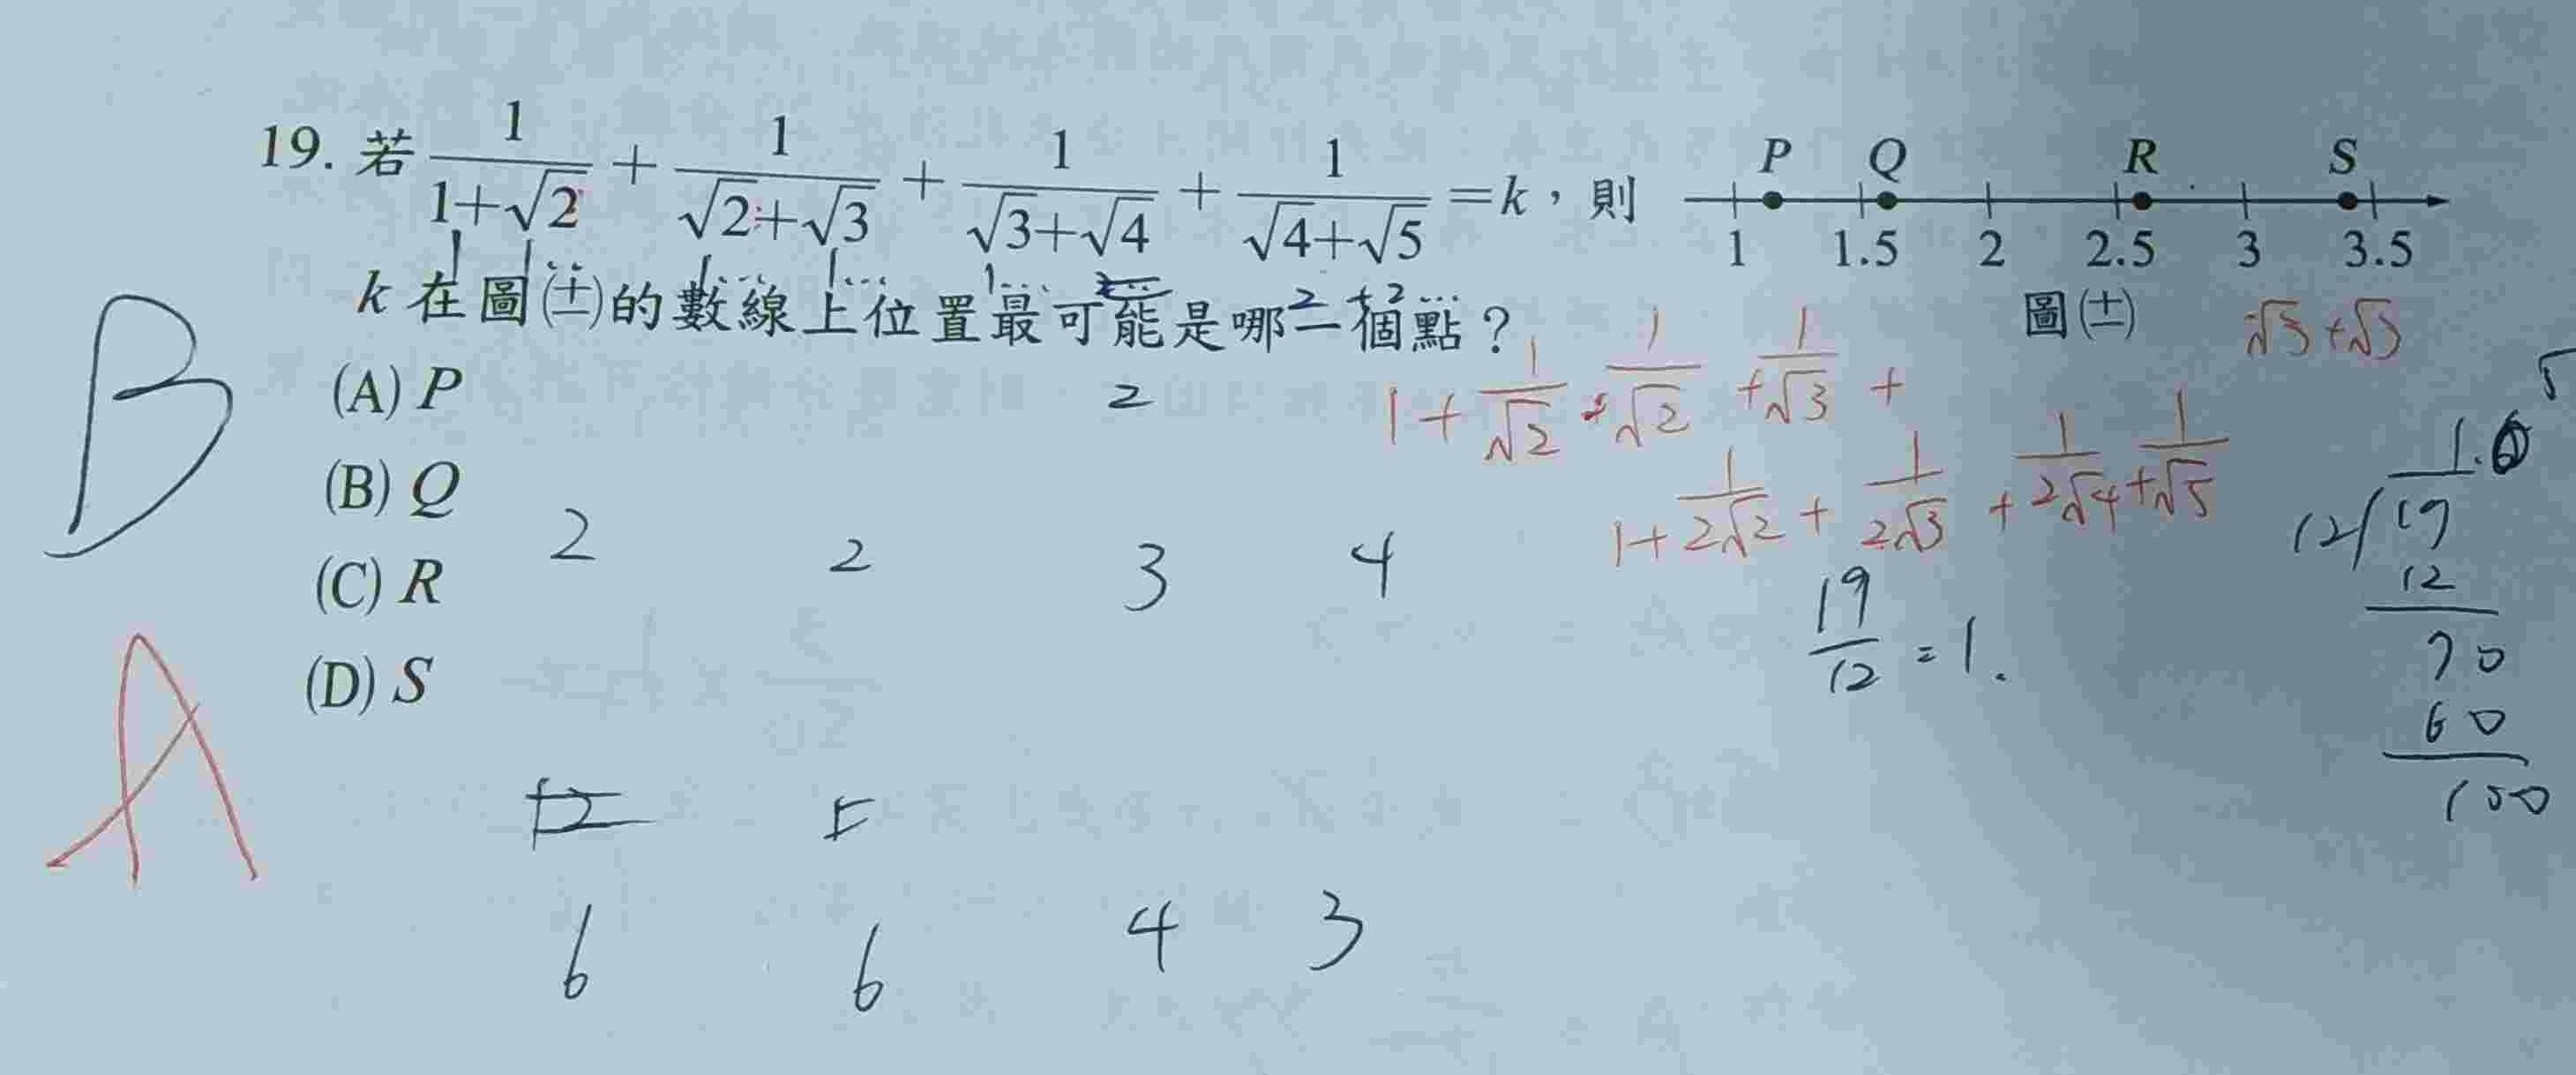 19. 若 1/(1+√2) + 1/(√2+√3) + 1/(√3+√4) + 1/(√4+√5) = k，則
k 在圖(十一)的數線上位置最可能是哪一個點？
P Q R S
1 1.5 2 2.5 3 3.5
圖(十一)
(A) P
(B) Q
(C) R
(D) S
B
A
√3+√3
2
1 + 1/√2 + 1/√2 + 1/√3 +
1 + 1/2√2 + 1/2√3 + 1/2√4 + 1/√5
2 2 3 4
19/12 = 1.
12 19
12
70
60
100
6 6 4 3